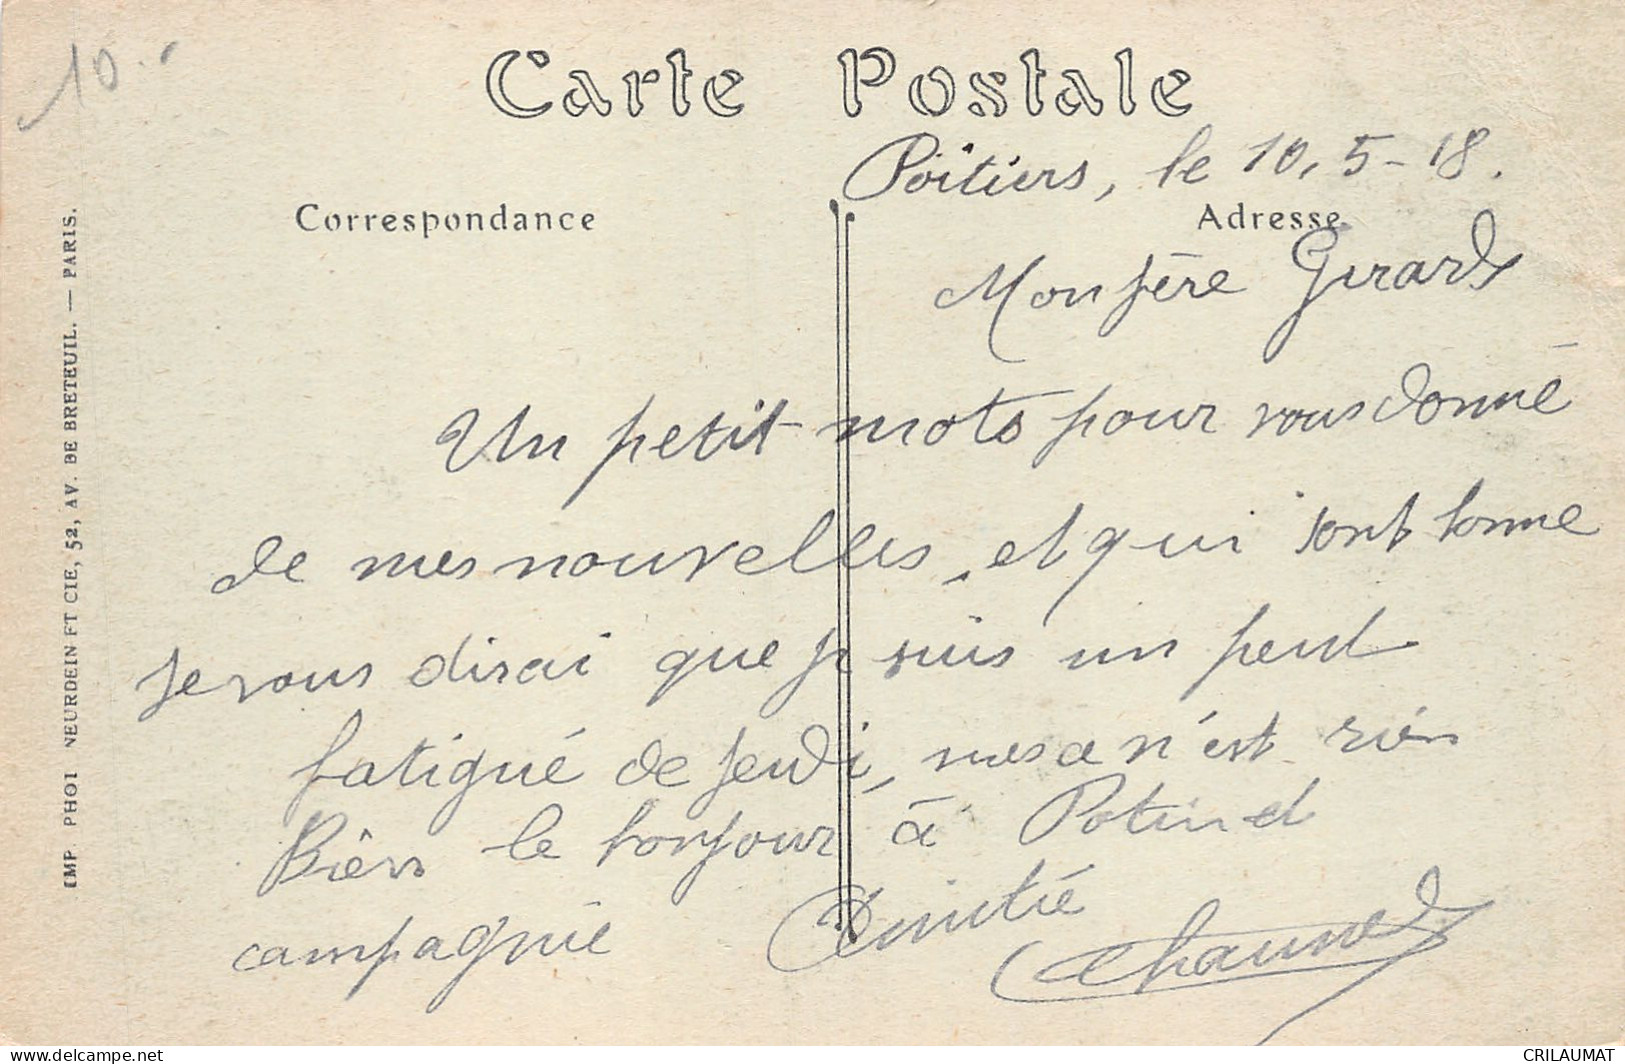 10.-
Carte Postale
Poitiers, le 10, 5-18.
Correspondance
Adresse
Mon père Girard
Un petit mots pour vous donné
de mes nouvelles, et qui sont bonne
Je vous dirai que je suis un peut
fatigué de jeudi, mes ce n'est rièn
Bièn le bonjour à Potin et
campagnie Amitié
IMP PHOT NEURDEIN ET CIE, 52, AV. DE BRETEUIL. — PARIS.
www.delcampe.net
CRILAUMAT